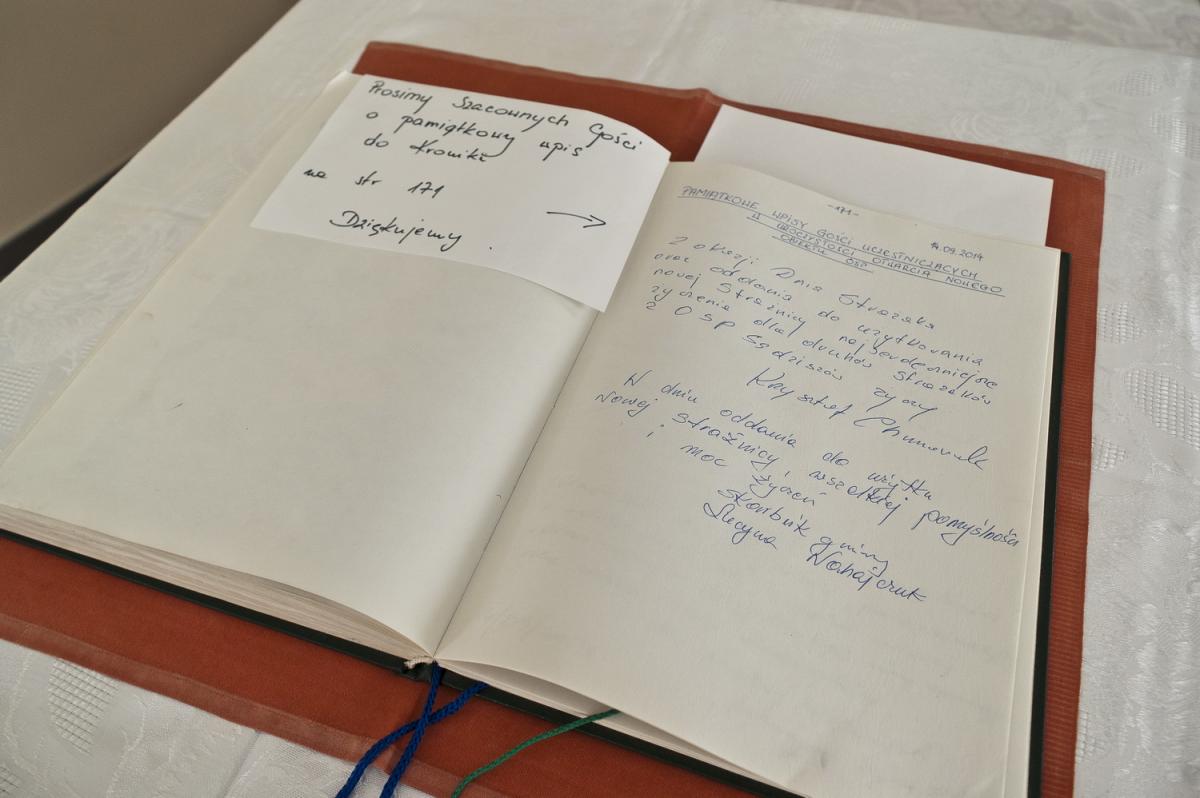 Prosimy Szacownych Gości
o pamiątkowy wpis
do Kroniki
na str 171
Dziękujemy.
-171-
14.09.2014
PAMIĄTKOWE WPISY GOŚCI UCZESTNICZĄCYCH
W UROCZYSTOŚCI OTWARCIA NOWEGO
OBIEKTU OSP
Z okazji Dnia Strażaka
oraz oddania do użytkowania
nowej Strażnicy najserdeczniejsze
życzenia dla druhów strażaków
z OSP Sędziszów życzy
Krzysztof
W dniu oddania do użytku
Nowej Strażnicy, wszelkiej pomyślności
i moc życzeń
Skarbnik gminy